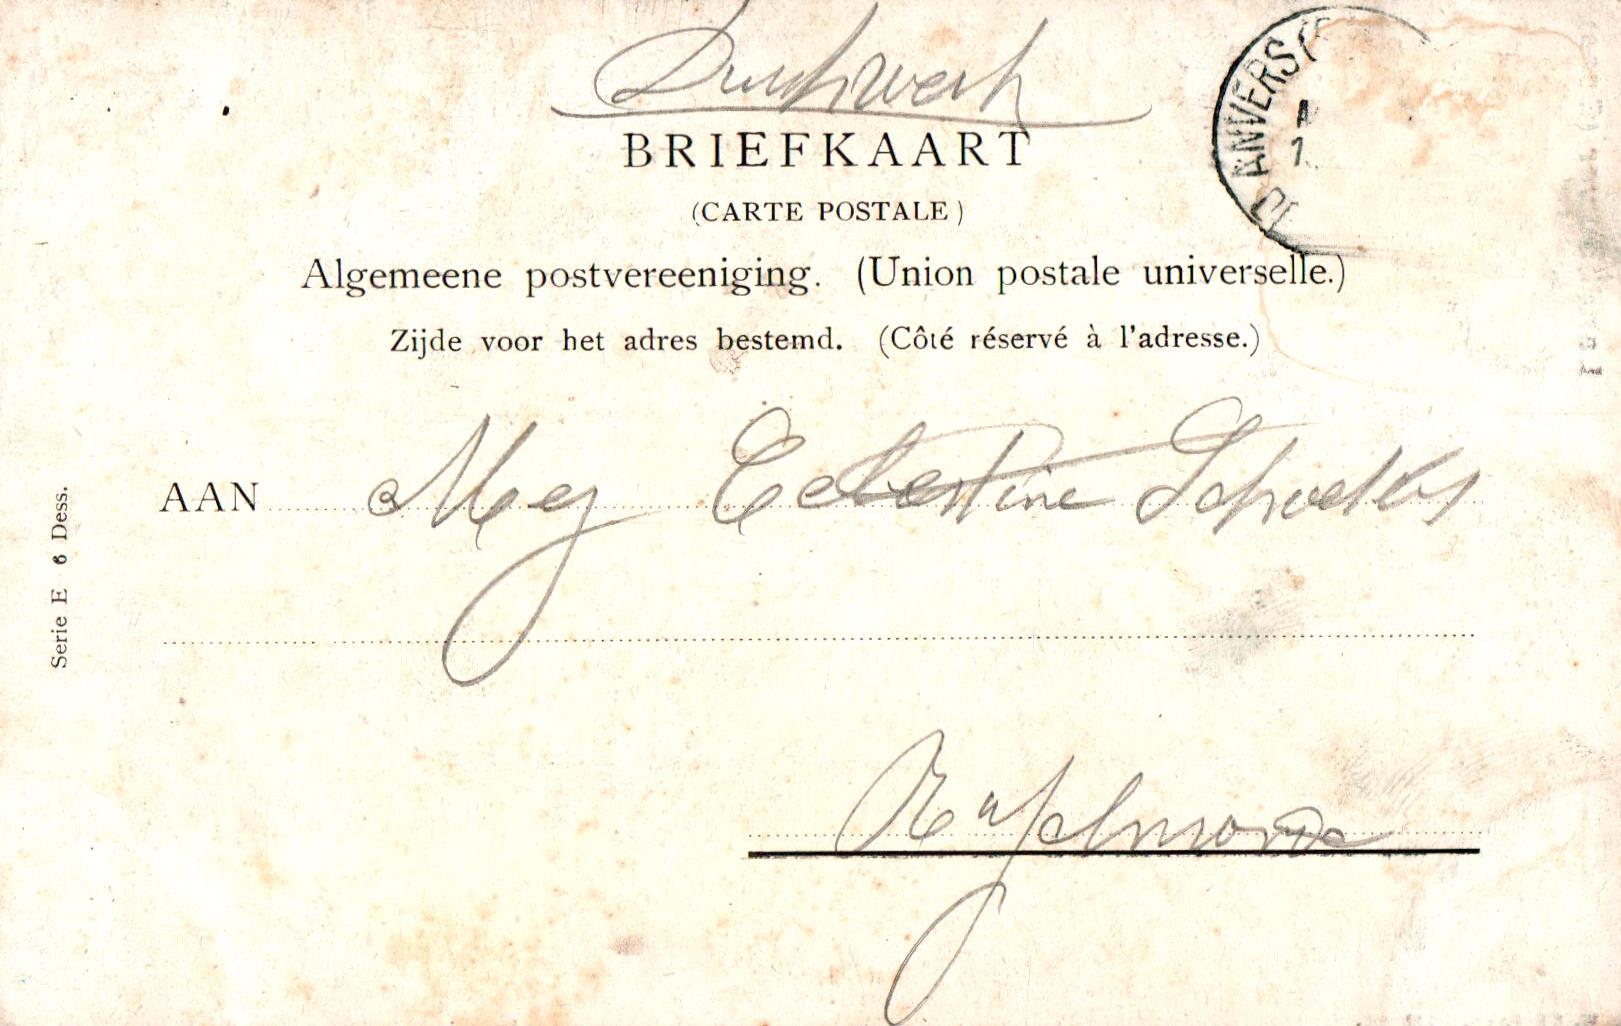 Drukwerk
ANVERS (
BRIEFKAART
(CARTE POSTALE)
Algemeene postvereeniging. (Union postale universelle.)
Zijde voor het adres bestemd. (Côté réservé à l'adresse.)
AAN Mej Celestine
Rupelmonde
Serie E 6 Dess.